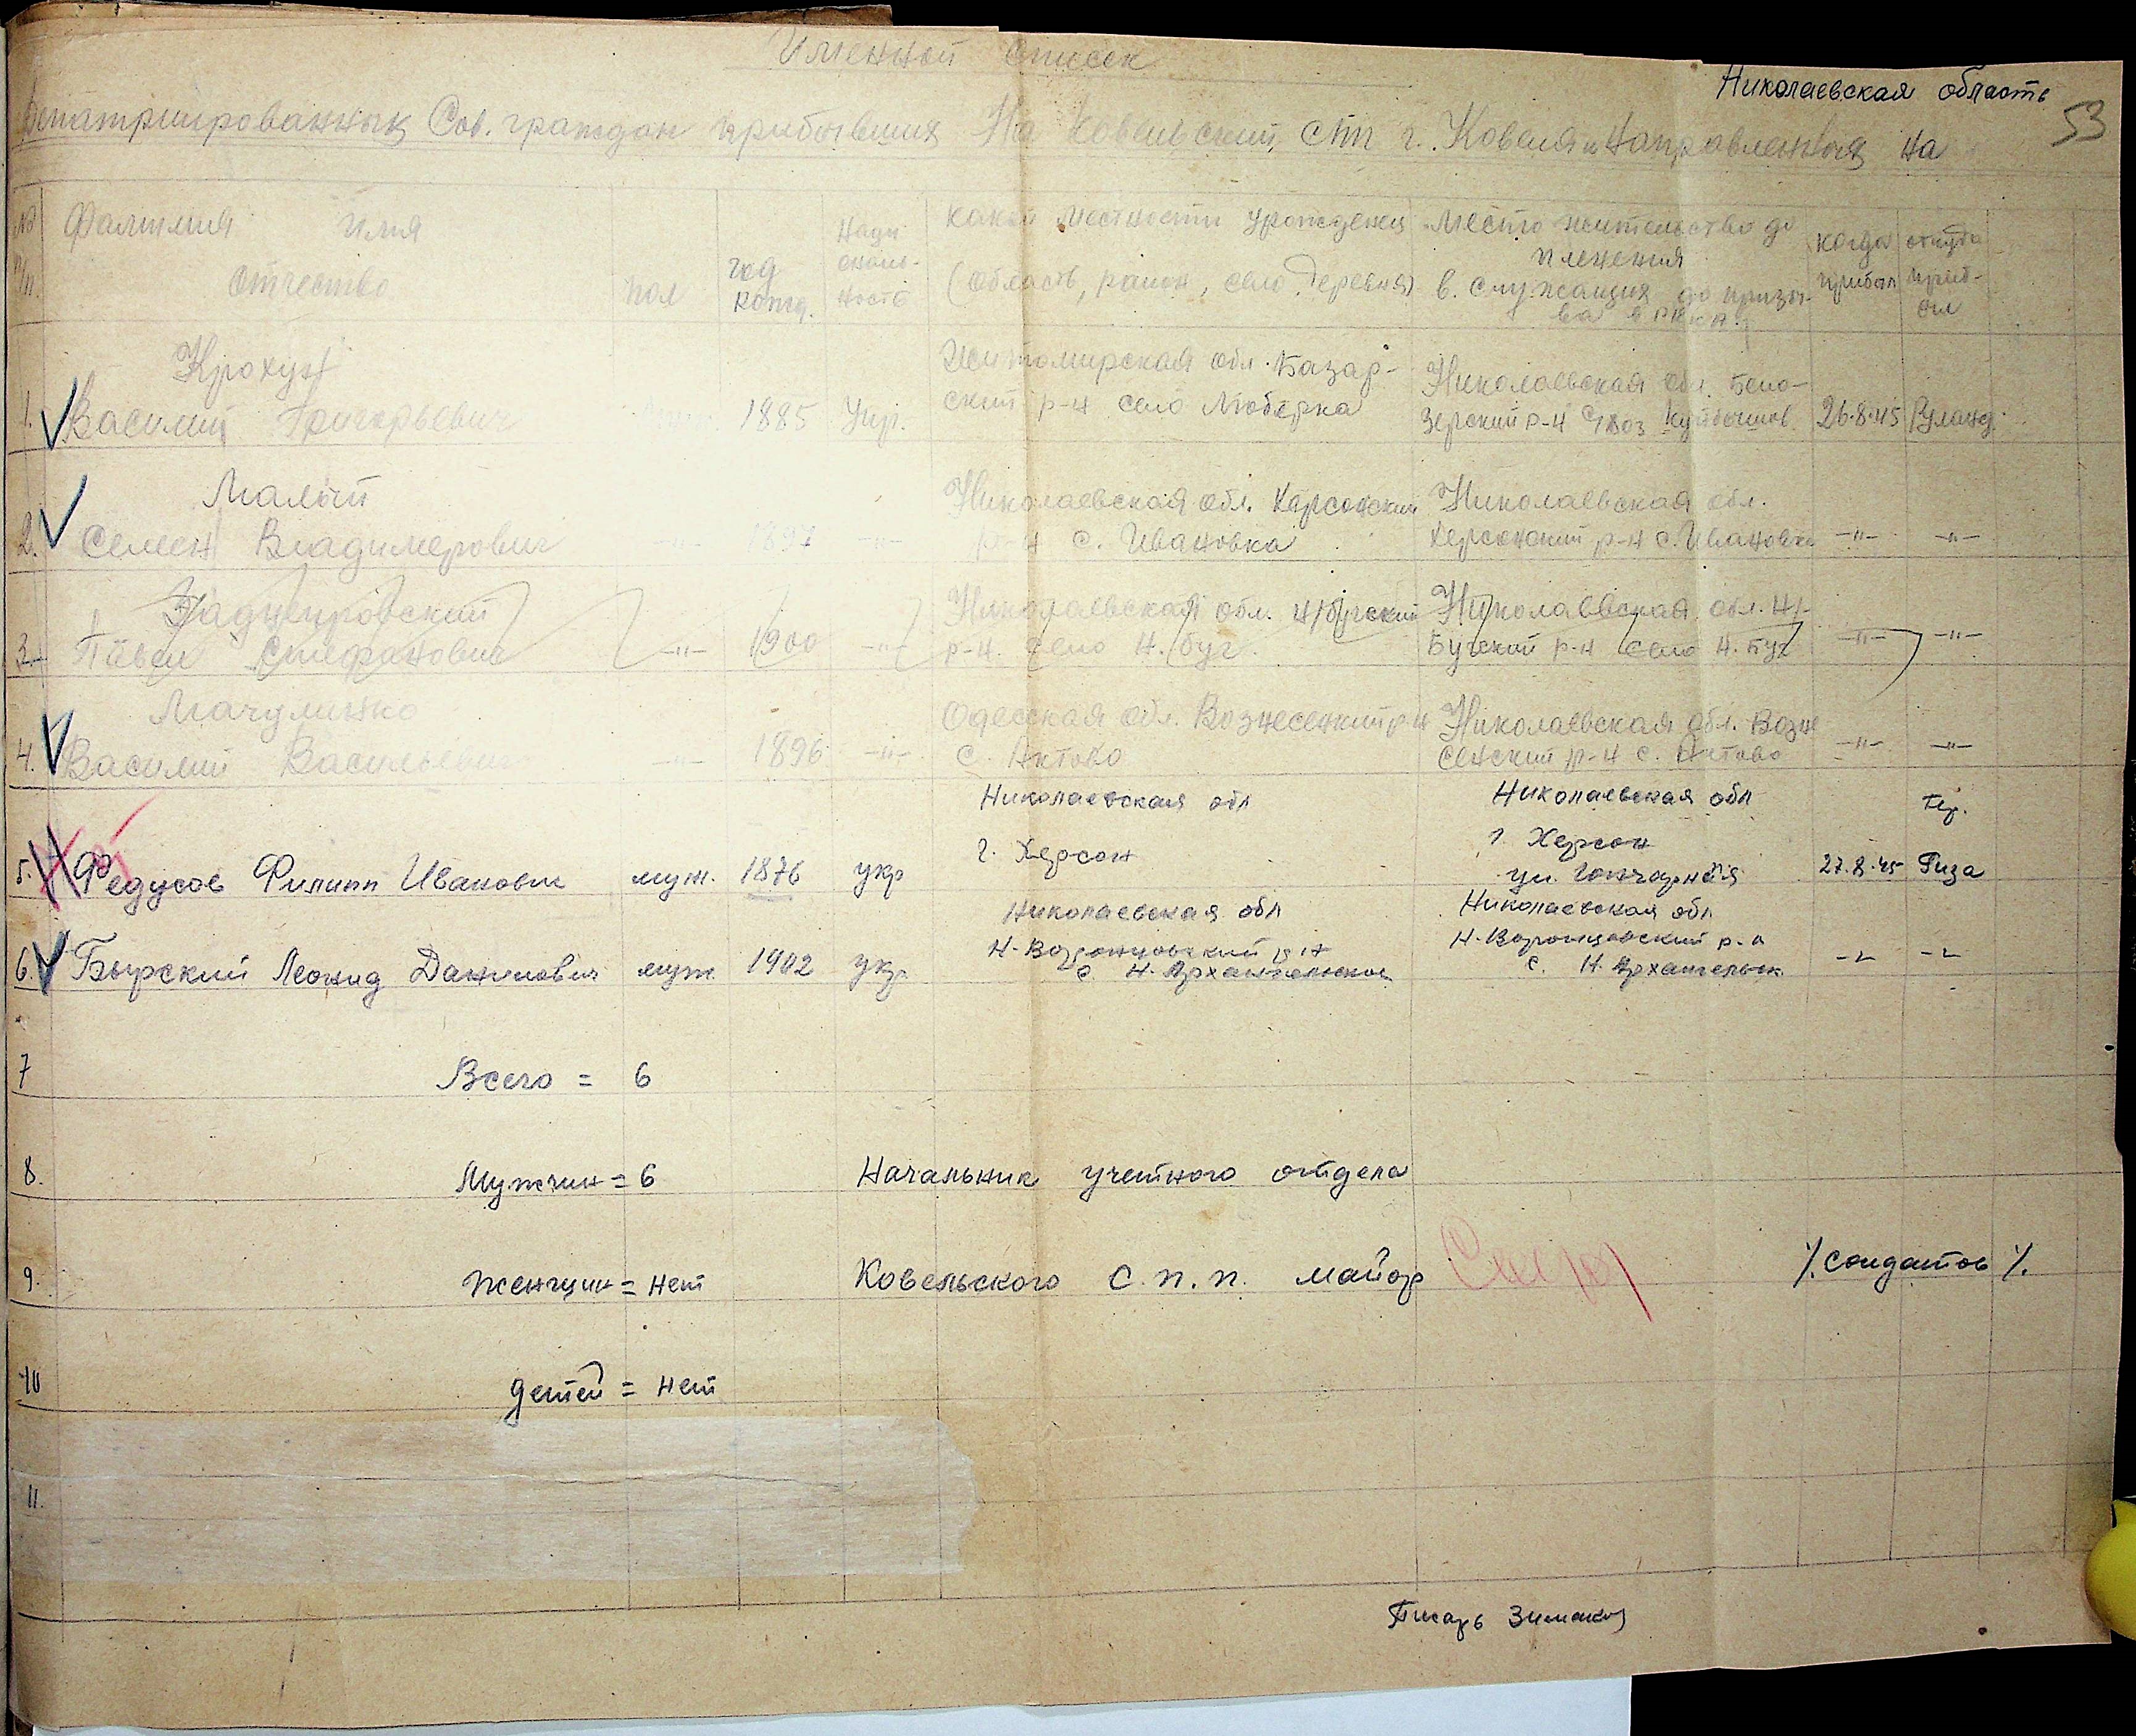 Именной список
Николаевская область
53
Репатриированных Сов. граждан прибывших На Ковельский СПП г. Ковеля и Направленных на
№ п/п. Фамилия Имя Отчество Пол год рожд. Наци ональ- ность какой Местности урожденец (область, район, село деревня) Место жительство до пленения в. служащих до призы- ва в РККА. когда прибыл откуда приб- ыл
Крохул Житомирская обл. Базар- Николаевская обл. Бело-
1. Василий Григорьевич 1885 Укр. ский р-н село Зерский р-н 26.8.45 Румынд.
Малый Николаевская обл. Херсонский Николаевская обл.
2. Семен Владимерович -"- 1897 -"- р-н с. Ивановка Херсонский р-н с. Ивановка -"- -"-
Николаевская обл. Н/бугский Николаевская обл. Н/-
3. Павел Стефанович -"- 1900 -"- р-н. село Н. буг. Бугский р-н село Н. Буг -"- -"-
Мачулинко Одесская обл. Вознесенкий р-н Николаевская обл. Возне
4. Василий Васильевич -"- 1896 -"- с. Актово сенский р-н с. Актово -"- -"-
Николаевская обл Николаевская обл Гер.
г. Херсон г. Херсон
5. Федусов Филипп Иванович муж. 1876 укр ул. Гончарная 27.8.45 Риза
Николаевская обл Николаевская обл
Н-Воронцовский р-н Н-Воронцовский р-н
6. Бырский Леонид Данилович муж 1902 укр с. Н. Архангельское с. Н. Архангельск -"- -"-
7 Всего = 6
8. Мужчин = 6 Начальник учетного отдела
9. Женщин = нет Ковельского С.П.П. майор /. Солдатов /.
10 детей = нет
11.
Писарь